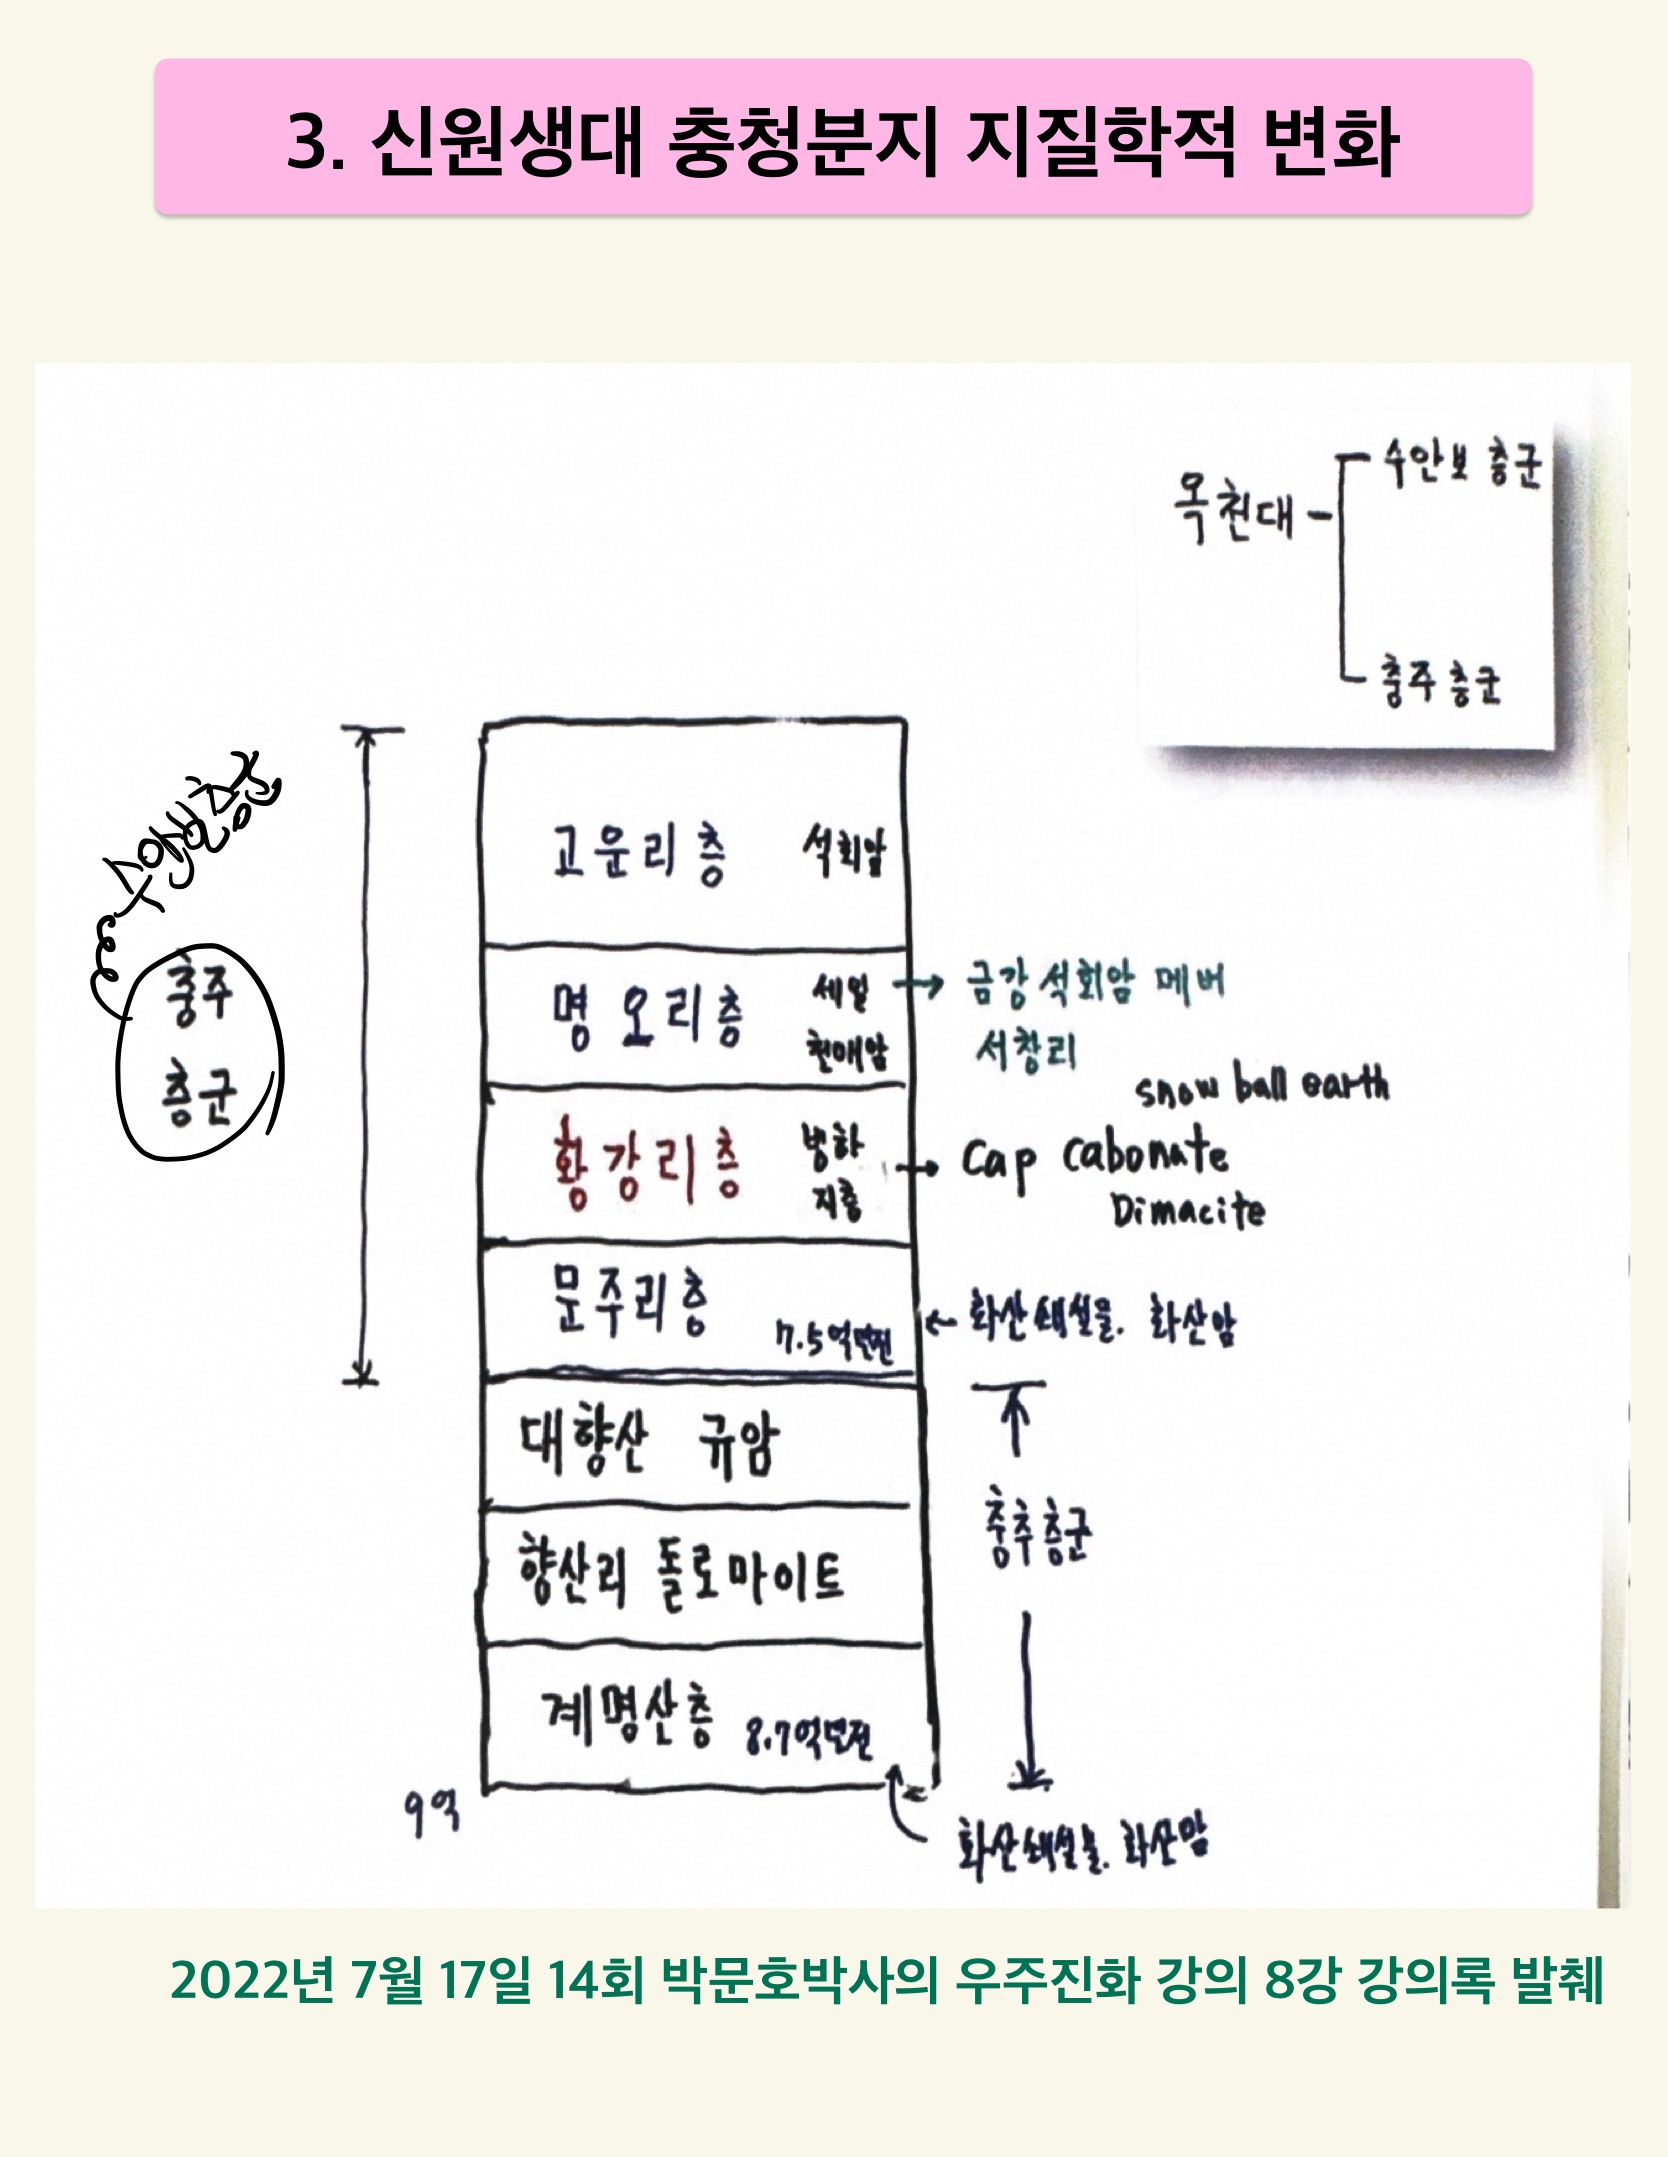 3. 신원생대 충청분지 지질학적 변화
옥천대
수안보 층군
충주 층군
수안보층군
충주
층군
고운리층 석회암
명오리층 세일
천매암
금강석회암 메버
서창리
snow ball earth
황강리층 빙하
지층
Cap Cabonate
Dimacite
문주리층
7.5억년전
화산쇄설물. 화산암
대향산 규암
충추층군
향산리 돌로마이트
계명산층 8.7억년전
9억
화산쇄설물. 화산암
2022년 7월 17일 14회 박문호박사의 우주진화 강의 8강 강의록 발췌